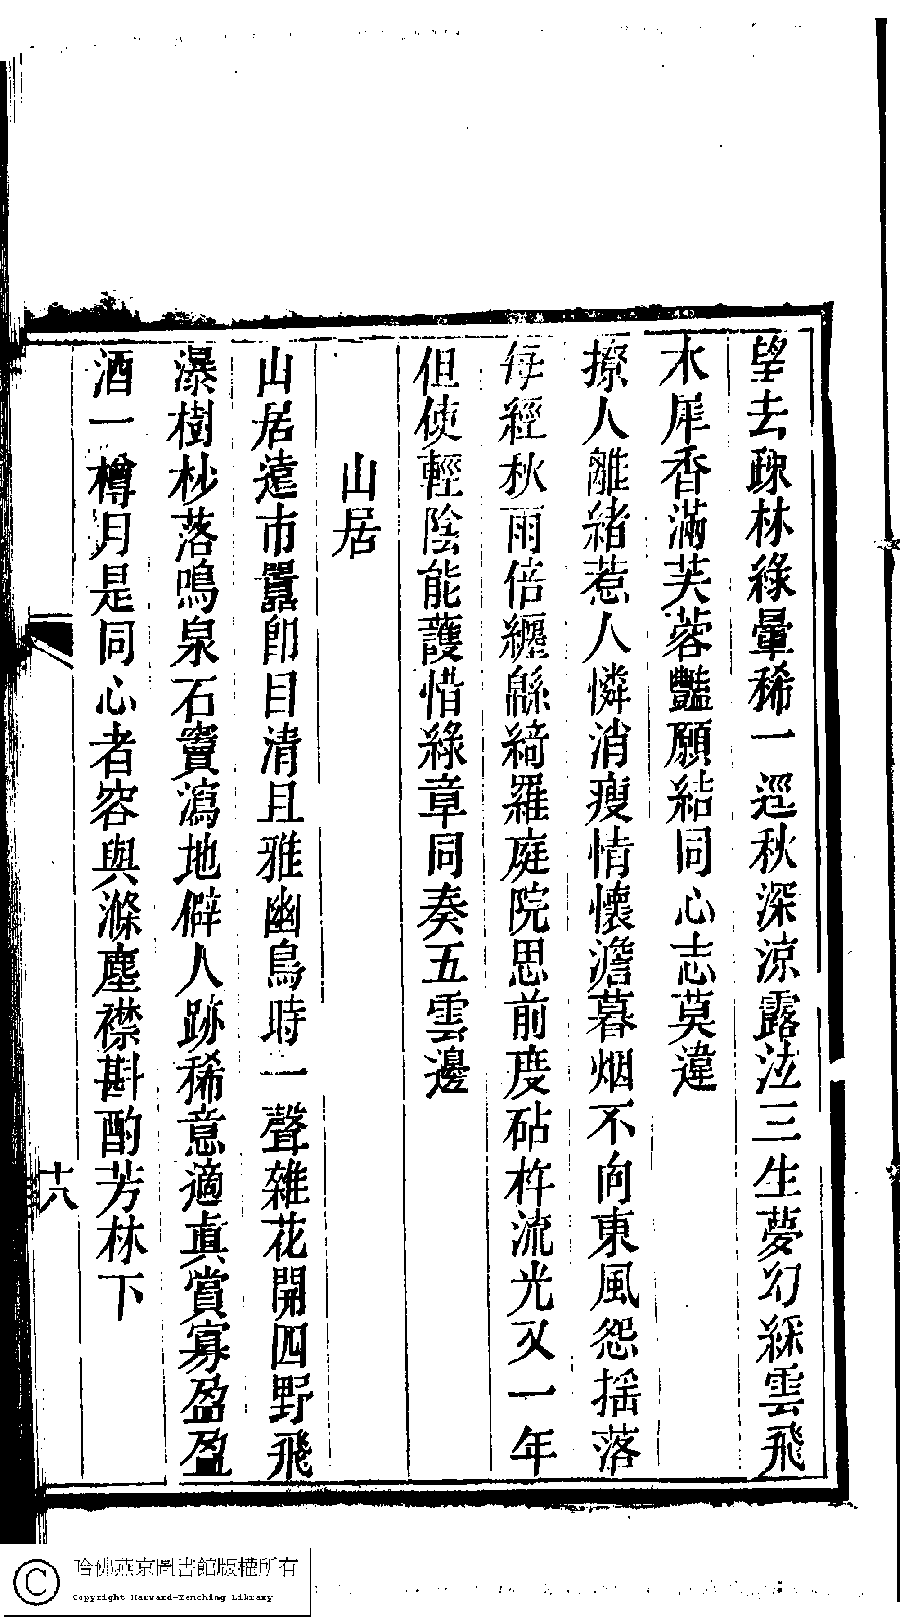 望去疎林綠暈稀一逕秋深涼露泣三生夢幻綵雲飛
木犀香滿芙蓉豔願結同心志莫違
撩人離緒惹人憐消瘦情懷澹暮烟不向東風怨揺落
每經秋雨倍纏緜綺羅庭院思前度砧杵流光又一年
但使輕陰能護惜綠章同奏五雲邊
山居
山居遠市囂卽目清且雅幽鳥時一聲雜花開四野飛
瀑樹杪落鳴泉石竇瀉地僻人跡稀意適眞賞寡盈盈
酒一樽月是同心者容與滌塵襟斟酌芳林下
十八
哈佛燕京圖書館版權所有
Copyright Harvard-Yenching Library